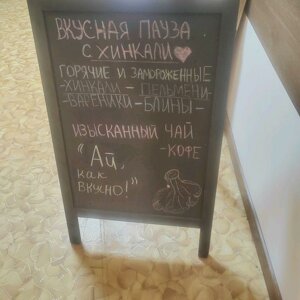 ВКУСНАЯ ПАУЗА
С ХИНКАЛИ
ГОРЯЧИЕ И ЗАМОРОЖЕННЫЕ
-ХИНКАЛИ - ПЕЛЬМЕНИ
-ВАРЕНИКИ -БЛИНЫ-
ИЗЫСКАННЫЙ ЧАЙ
-КОФЕ
"АЙ,
КАК
ВКУСНО!"